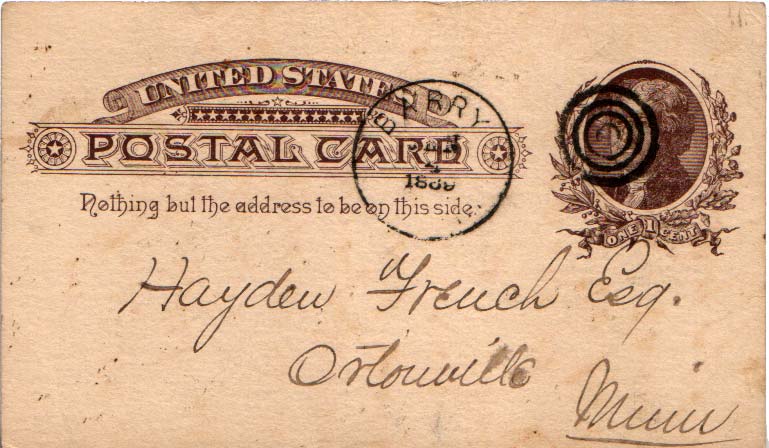 UNITED STATES
POSTAL CARD
Nothing but the address to be on this side.
1889
ONE 1 CENT
Hayden French Esq.
Ortonville
Minn